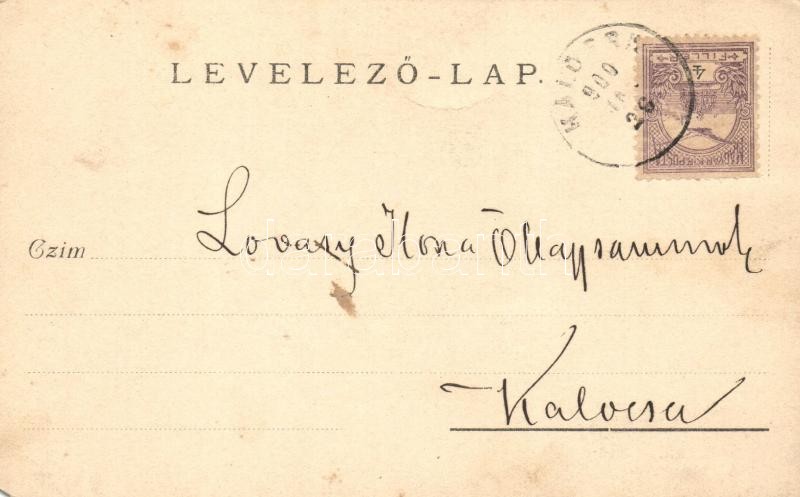 LEVELEZŐ-LAP.
KALOCSA
900
4
FILLÉR
MAGYAR KIR. POSTA
Czim
Lovasy Ilona
Kalocsa